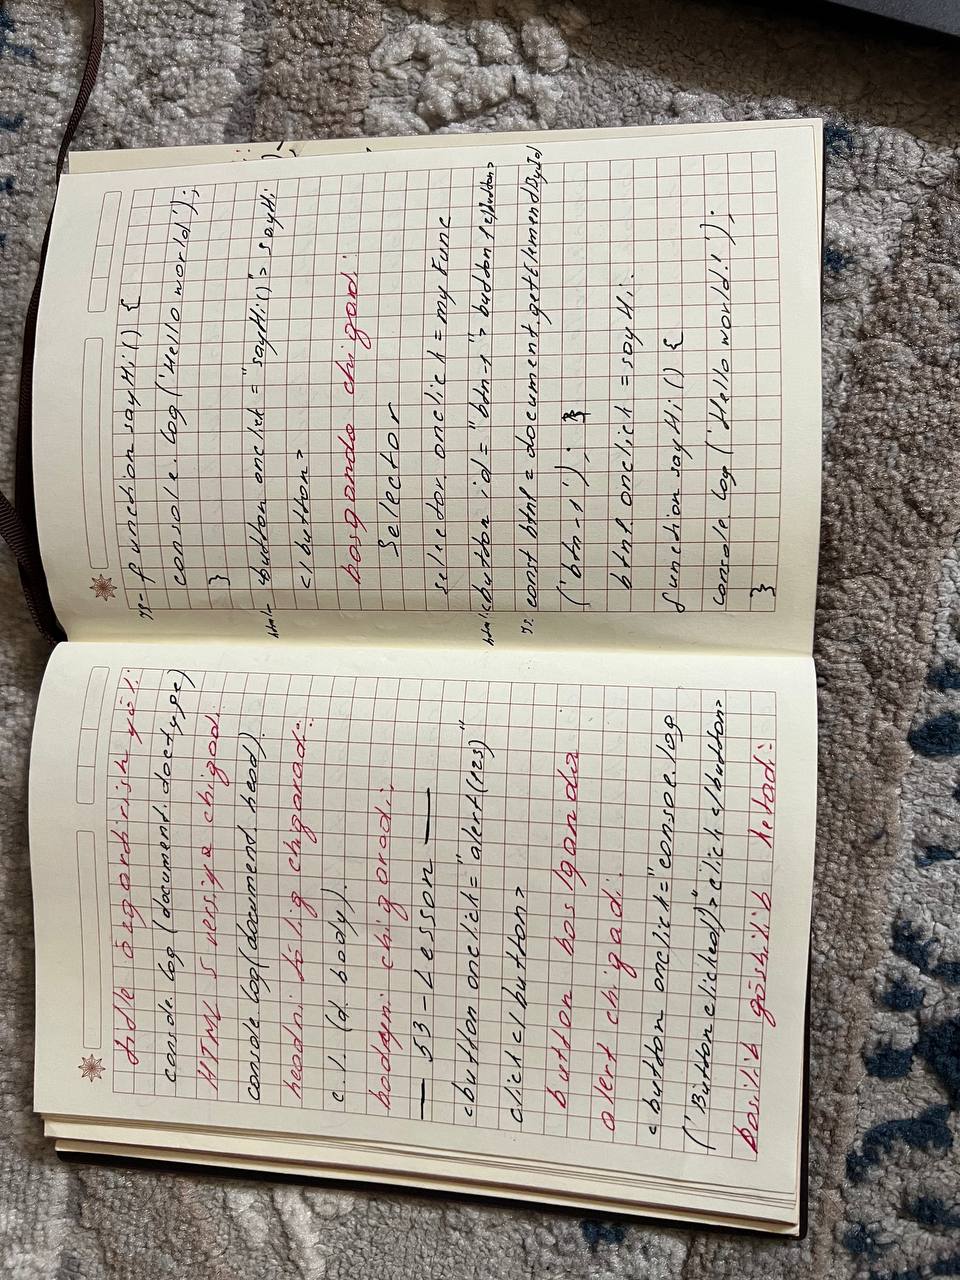 title o'zgartirish yo'l:
console.log (document.doctype)
HTML 5 versiya chiqad:
console.log(document.head).
headni to'liq chiqaradi:
c.l. (d.body).
bodyni chiqoradi:
— 53-Lesson —
<button onclick="alert(123)"
click</button>
button bosilganda
alert chiqadi:
<button onclick="console.log
('Button clicked)">click</button>
bosilib qo'shilib ketadi:
JS- function sayHi() {
console.log('Hello world');
}
html- <button onclick="sayHi()"> sayHi
</button>
bosganda chiqadi:
Selector
selector onclick = myFunc
html: <button id="btn-1"> button 1</button>
JS: const btn1 = document.getElemendById
('btn-1');
btn1.onclick = sayHi.
function sayHi() {
console.log('Hello world!');
}